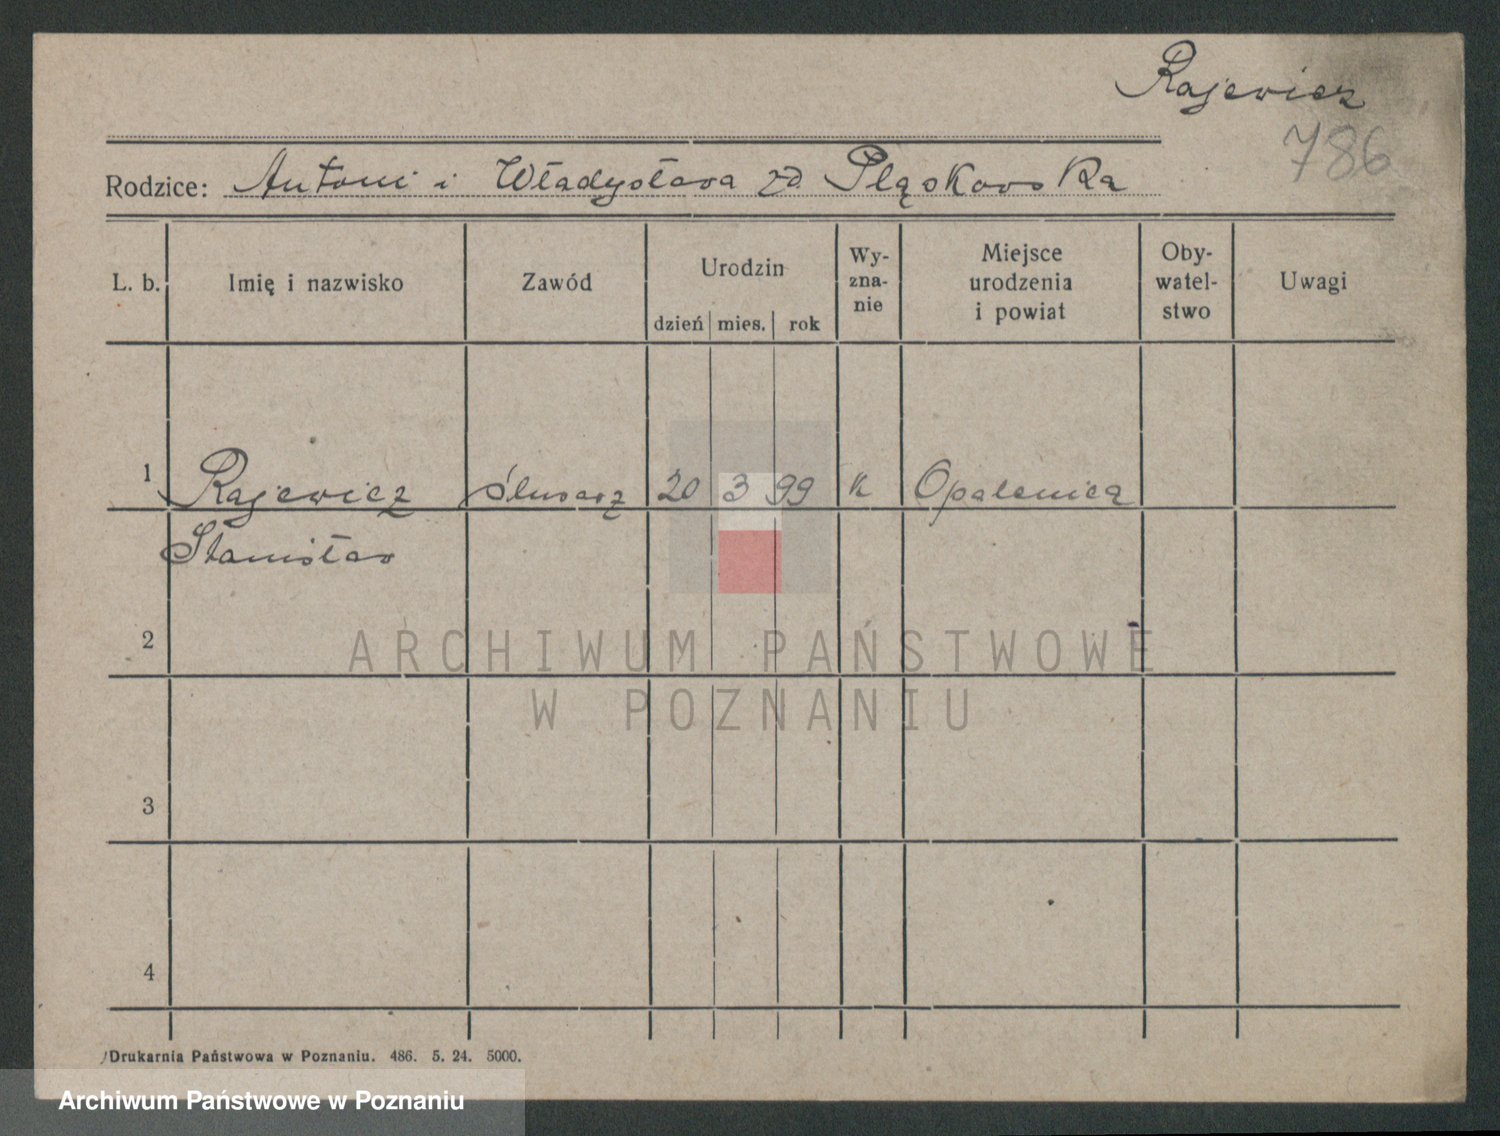 Rajewicz
786
Rodzice: Antoni i Władysława zd. Pląskowska
L. b. Imię i nazwisko Zawód Urodzin dzień mies. rok Wy-zna-nie Miejsce urodzenia i powiat Oby-watel-stwo Uwagi
1 Rajewicz ślusarz 20 3 99 k Opalenica
Stanisław
2
ARCHIWUM PAŃSTWOWE
W POZNANIU
3
4
Drukarnia Państwowa w Poznaniu. 486. 5. 24. 5000.
Archiwum Państwowe w Poznaniu